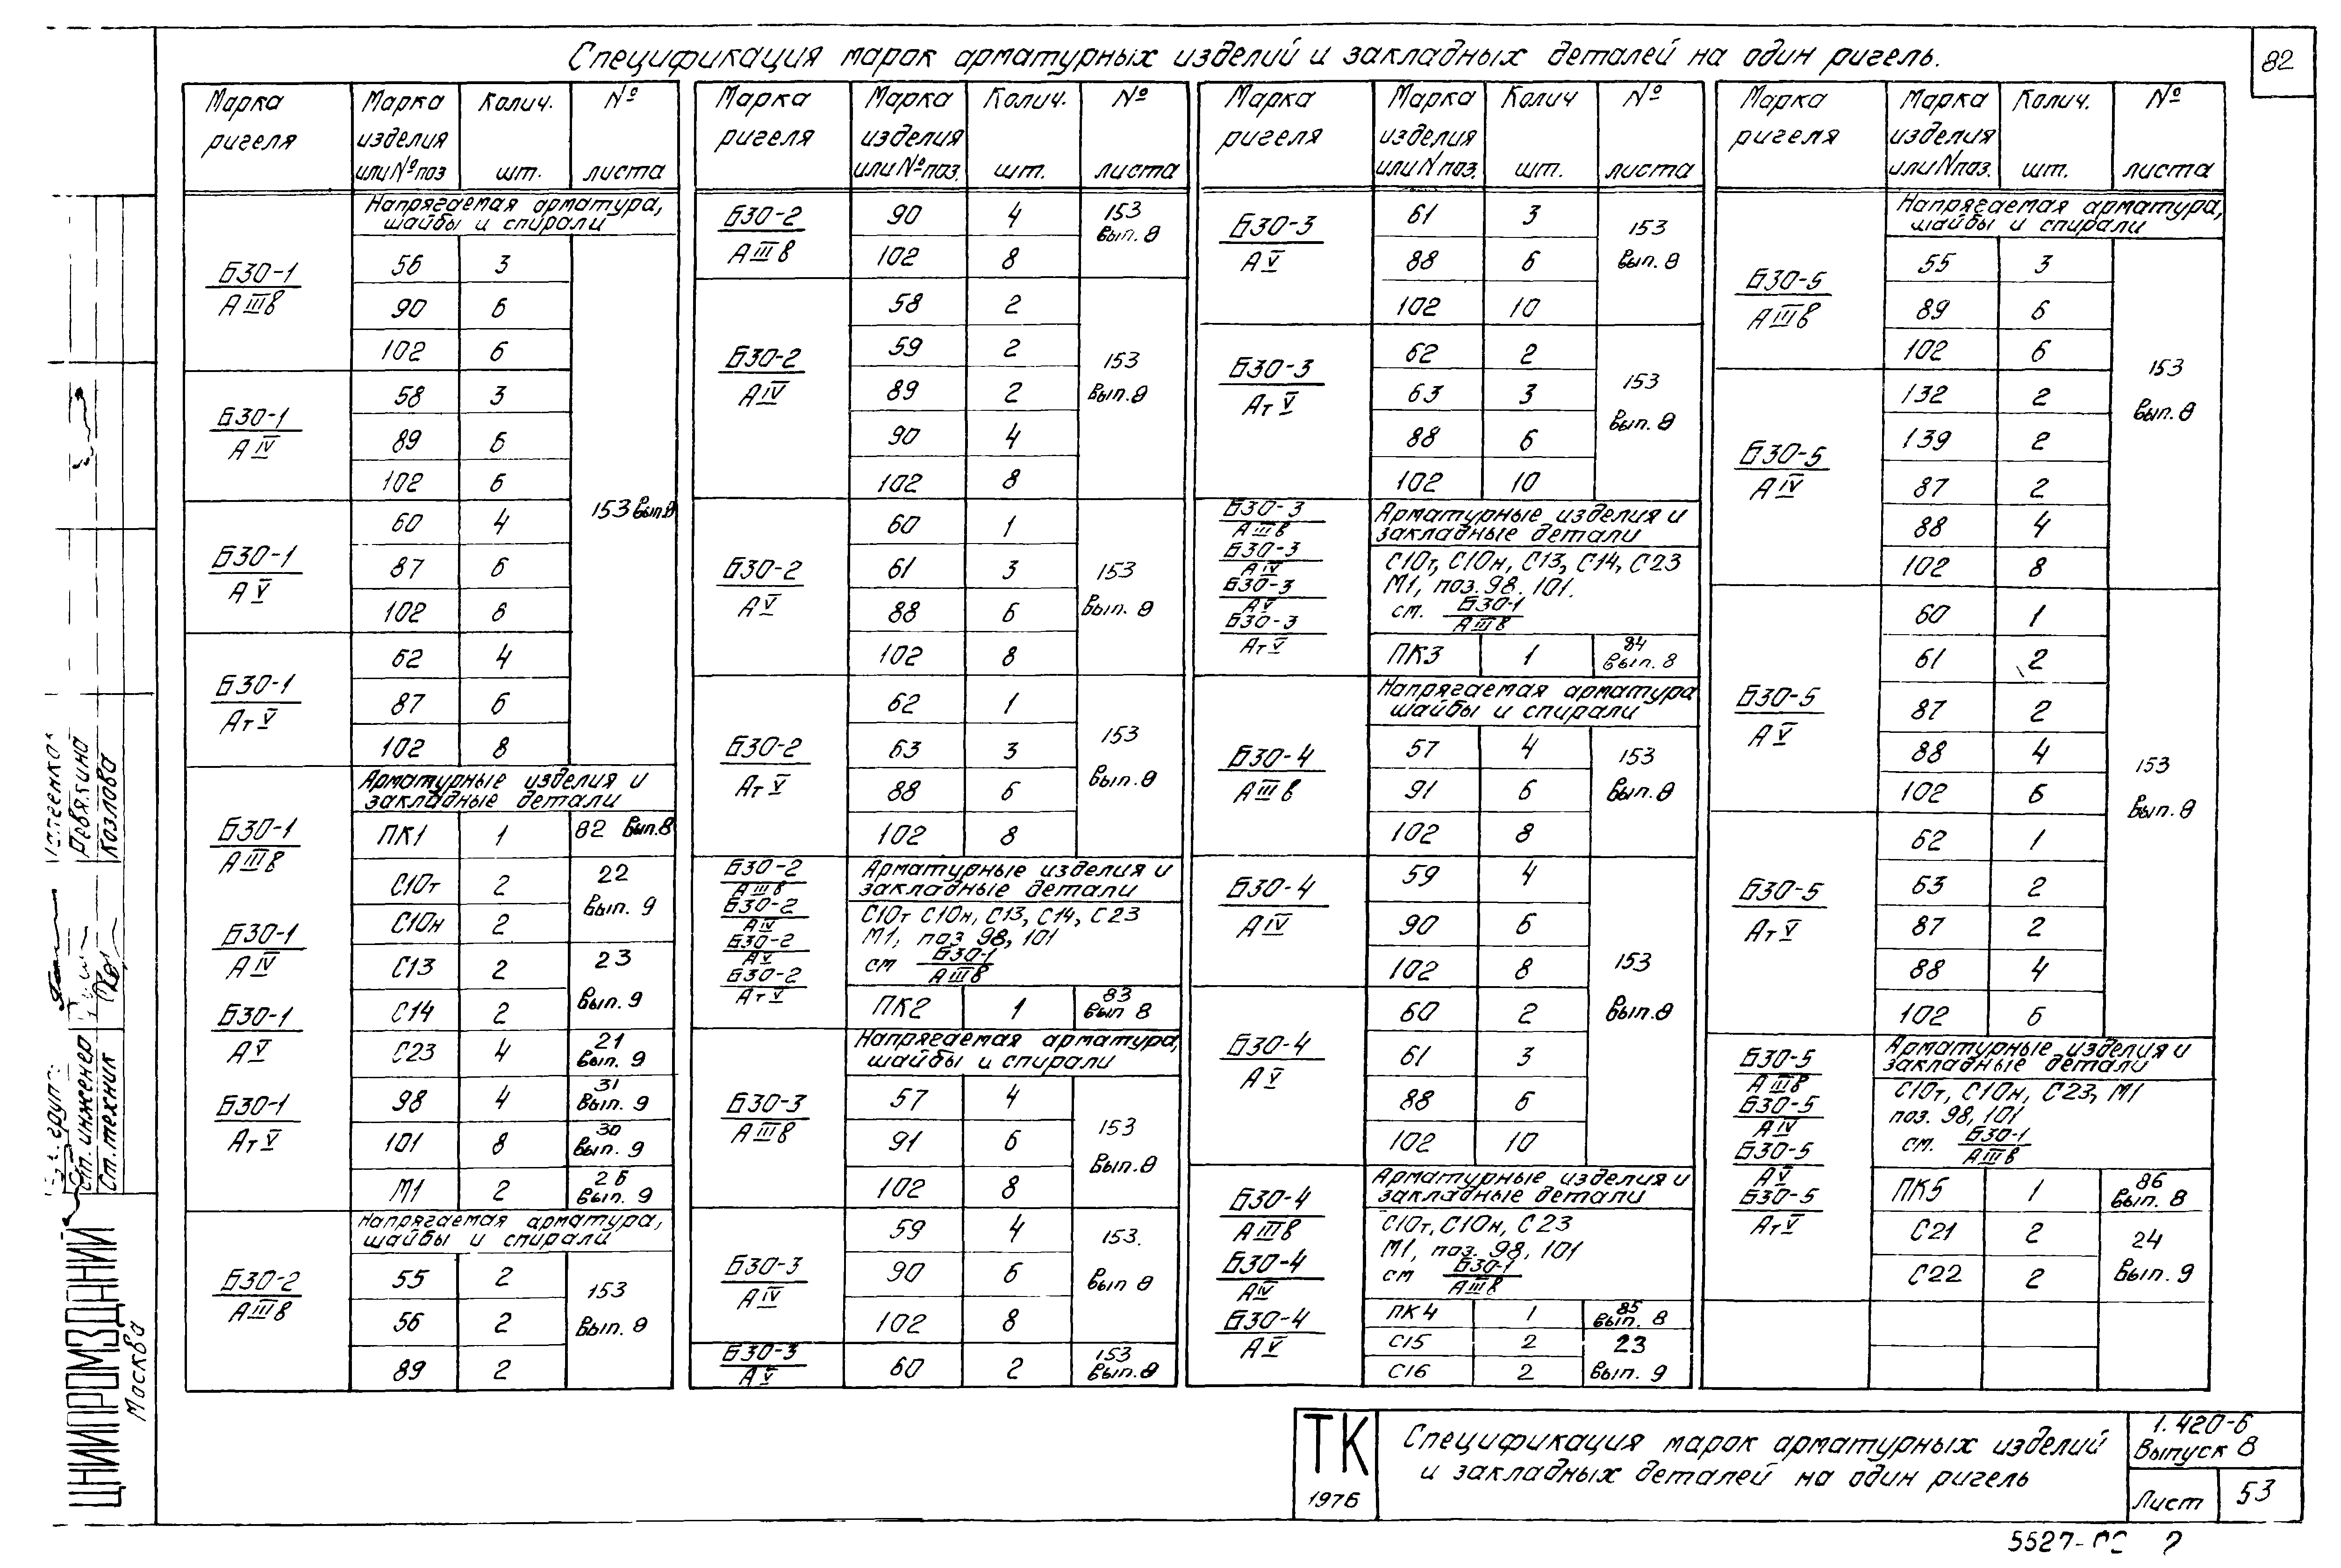 82
Спецификация марок арматурных изделий и закладных деталей на один ригель.
Марка ригеля | Марка изделия или № поз | Колич. шт. | № листа
Напрягаемая арматура, шайбы и спирали
Б30-1 АIIIв
56 3
90 6
102 6
Б30-1 АIV
58 3
89 6
102 6
153 вып.8
Б30-1 АV
60 4
87 6
102 8
Б30-1 АтV
62 4
87 6
102 8
Арматурные изделия и закладные детали
Б30-1 АIIIв
Б30-1 АIV
Б30-1 АV
Б30-1 АтV
ПК1 1 82 Вып.8
С10т 2 22 Вып. 9
С10н 2
С13 2 23 Вып. 9
С14 2
С23 4 21 Вып. 9
98 4 31 Вып. 9
101 8 30 Вып. 9
М1 2 26 Вып. 9
Напрягаемая арматура, шайбы и спирали
Б30-2 АIIIв
55 2
56 2
89 2
153 Вып. 8
Марка ригеля | Марка изделия или № поз. | Колич. шт. | № листа
Б30-2 АIIIв
90 4
102 8
153 Вып. 8
Б30-2 АIV
58 2
59 2
89 2
90 4
102 8
153 Вып.8
Б30-2 АV
60 1
61 3
88 6
102 8
153 Вып. 8
Б30-2 АтV
62 1
63 3
88 6
102 8
153 Вып.8
Б30-2 АIIIв
Б30-2 АIV
Б30-2 АV
Б30-2 АтV
Арматурные изделия и закладные детали
С10т С10н, С13, С14, С23
М1, поз 98, 101
см Б30-1 АIIIв
ПК2 1 83 Вып 8
Напрягаемая арматура, шайбы и спирали
Б30-3 АIIIв
57 4
91 6
102 8
153 Вып.8
Б30-3 АIV
59 4
90 6
102 8
153. Вып 8
Б30-3 АV
60 2 153 Вып.8
Марка ригеля | Марка изделия или N поз. | Колич шт. | № листа
Б30-3 АV
61 3
88 6
102 10
153 Вып. 8
Б30-3 АтV
62 2
63 3
88 6
102 10
153 Вып. 8
Б30-3 АIIIв
Б30-3 АIV
Б30-3 АV
Б30-3 АтV
Арматурные изделия и закладные детали
С10т, С10н, С13, С14, С23
М1, поз. 98. 101.
см. Б30-1 АIIIв
ПК3 1 84 Вып. 8
Напрягаемая арматура шайбы и спирали
Б30-4 АIIIв
57 4
91 6
102 8
153 Вып.8
Б30-4 АIV
59 4
90 6
102 8
153 Вып.8
Б30-4 АV
60 2
61 3
88 6
102 10
Б30-4 АIIIв
Б30-4 АIV
Б30-4 АV
Арматурные изделия и закладные детали
С10т, С10н, С23
М1, поз. 98, 101
см Б30-1 АIIIв
ПК4 1 85 Вып. 8
С15 2 23
С16 2 Вып. 9
Марка ригеля | Марка изделия или N поз. | Колич. шт. | № листа
Напрягаемая арматура, шайбы и спирали
Б30-5 АIIIв
55 3
89 6
102 6
153 Вып. 8
Б30-5 АIV
132 2
139 2
87 2
88 4
102 8
Б30-5 АV
60 1
61 2
87 2
88 4
102 6
153 Вып. 8
Б30-5 АтV
62 1
63 2
87 2
88 4
102 6
Б30-5 АIIIв
Б30-5 АIV
Б30-5 АV
Б30-5 АтV
Арматурные изделия и закладные детали
С10т, С10н, С23, М1
поз. 98, 101
см. Б30-1 АIIIв
ПК5 1 86 Вып. 8
С21 2 24
С22 2 Вып. 9
Ревякина
Козлова
Ст. инженер
Ст. техник
ЦНИИПРОМЗДАНИЙ
Москва
ТК
1976
Спецификация марок арматурных изделий
и закладных деталей на один ригель
1.420-6
Выпуск 8
Лист 53
5527-